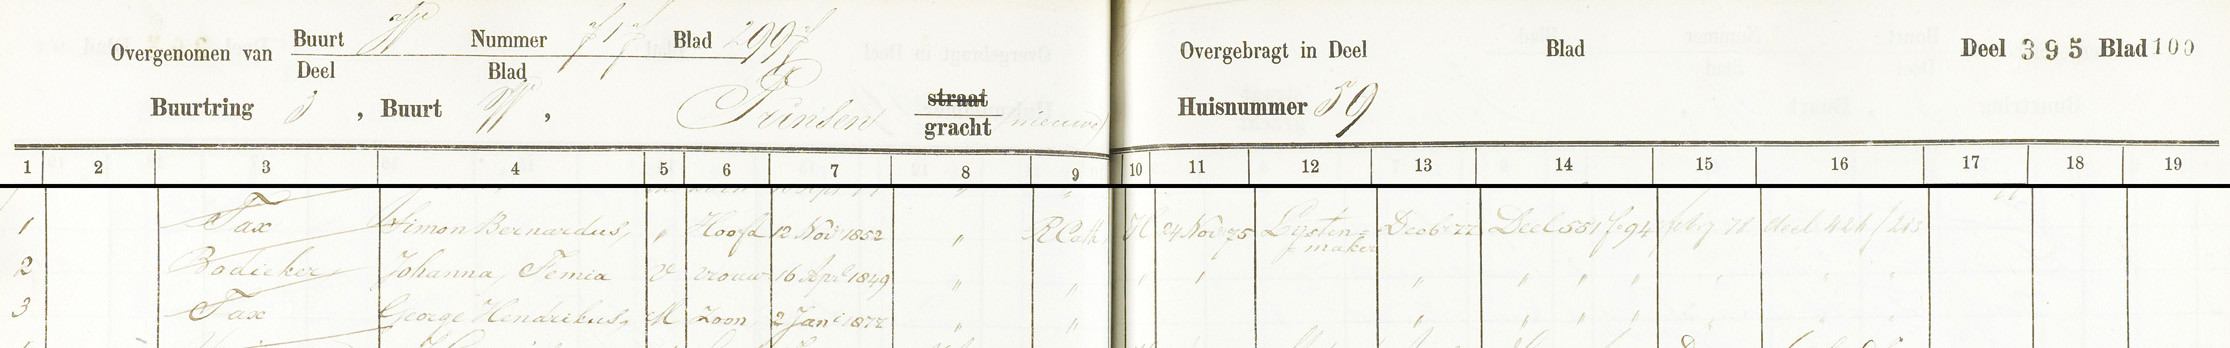 Overgenomen van Buurt Nummer 717 Blad 299
Deel Blad
Overgebragt in Deel Blad Deel 395 Blad 100
Buurtring 3, Buurt , Prinsen straat
gracht (nieuwe)
Huisnummer 59
1 2 3 4 5 6 7 8 9 10 11 12 13 14 15 16 17 18 19
1 Tax Simon Bernardus, " Hoofd 12 Nov 1852 " R Cath H 24 Nov 75 Lysten=maker Decb 77 Deel 551 f 94 78 deel 424 / 213
2 Bodicker Johanna Femia V vrouw 16 Apr 1849 " " " " " " " " " " "
3 Tax George Hendrikus, M Zoon 2 Jan 1877 " " " " " " " " "